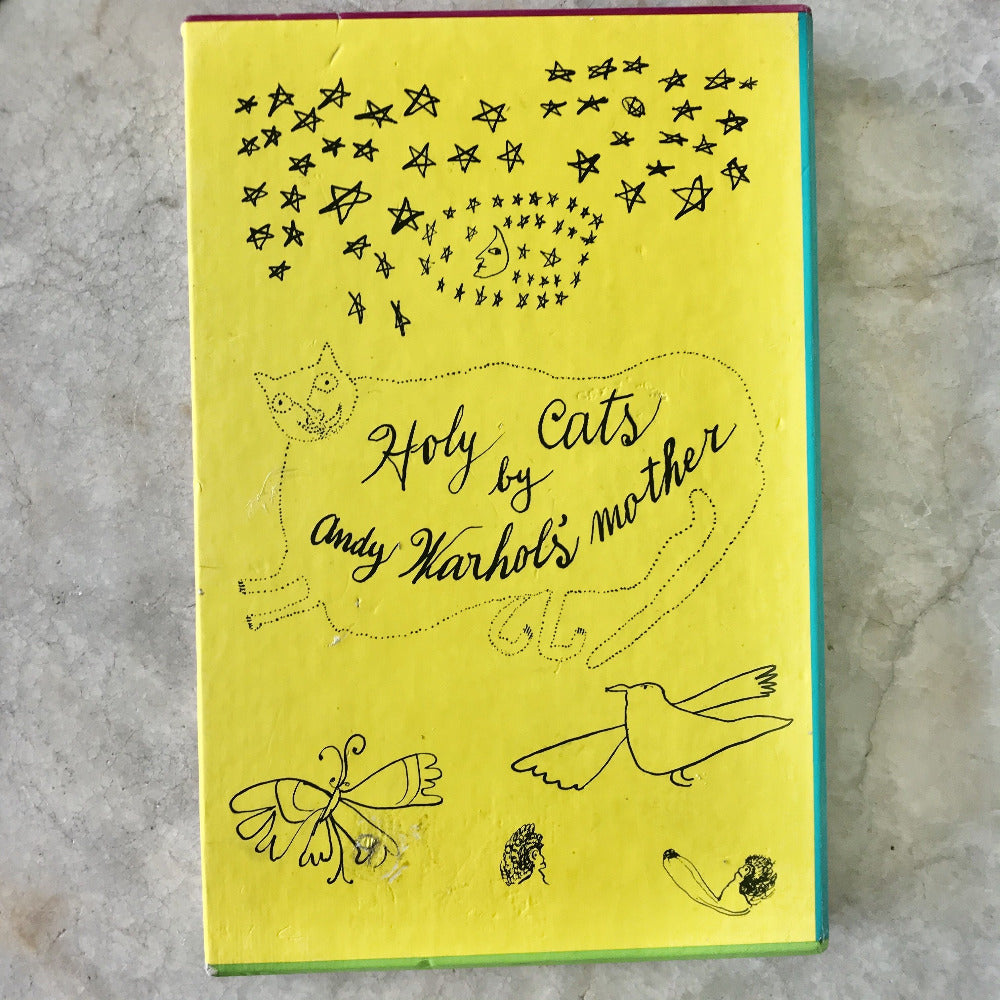 Holy Cats
by
andy Warhol's mother